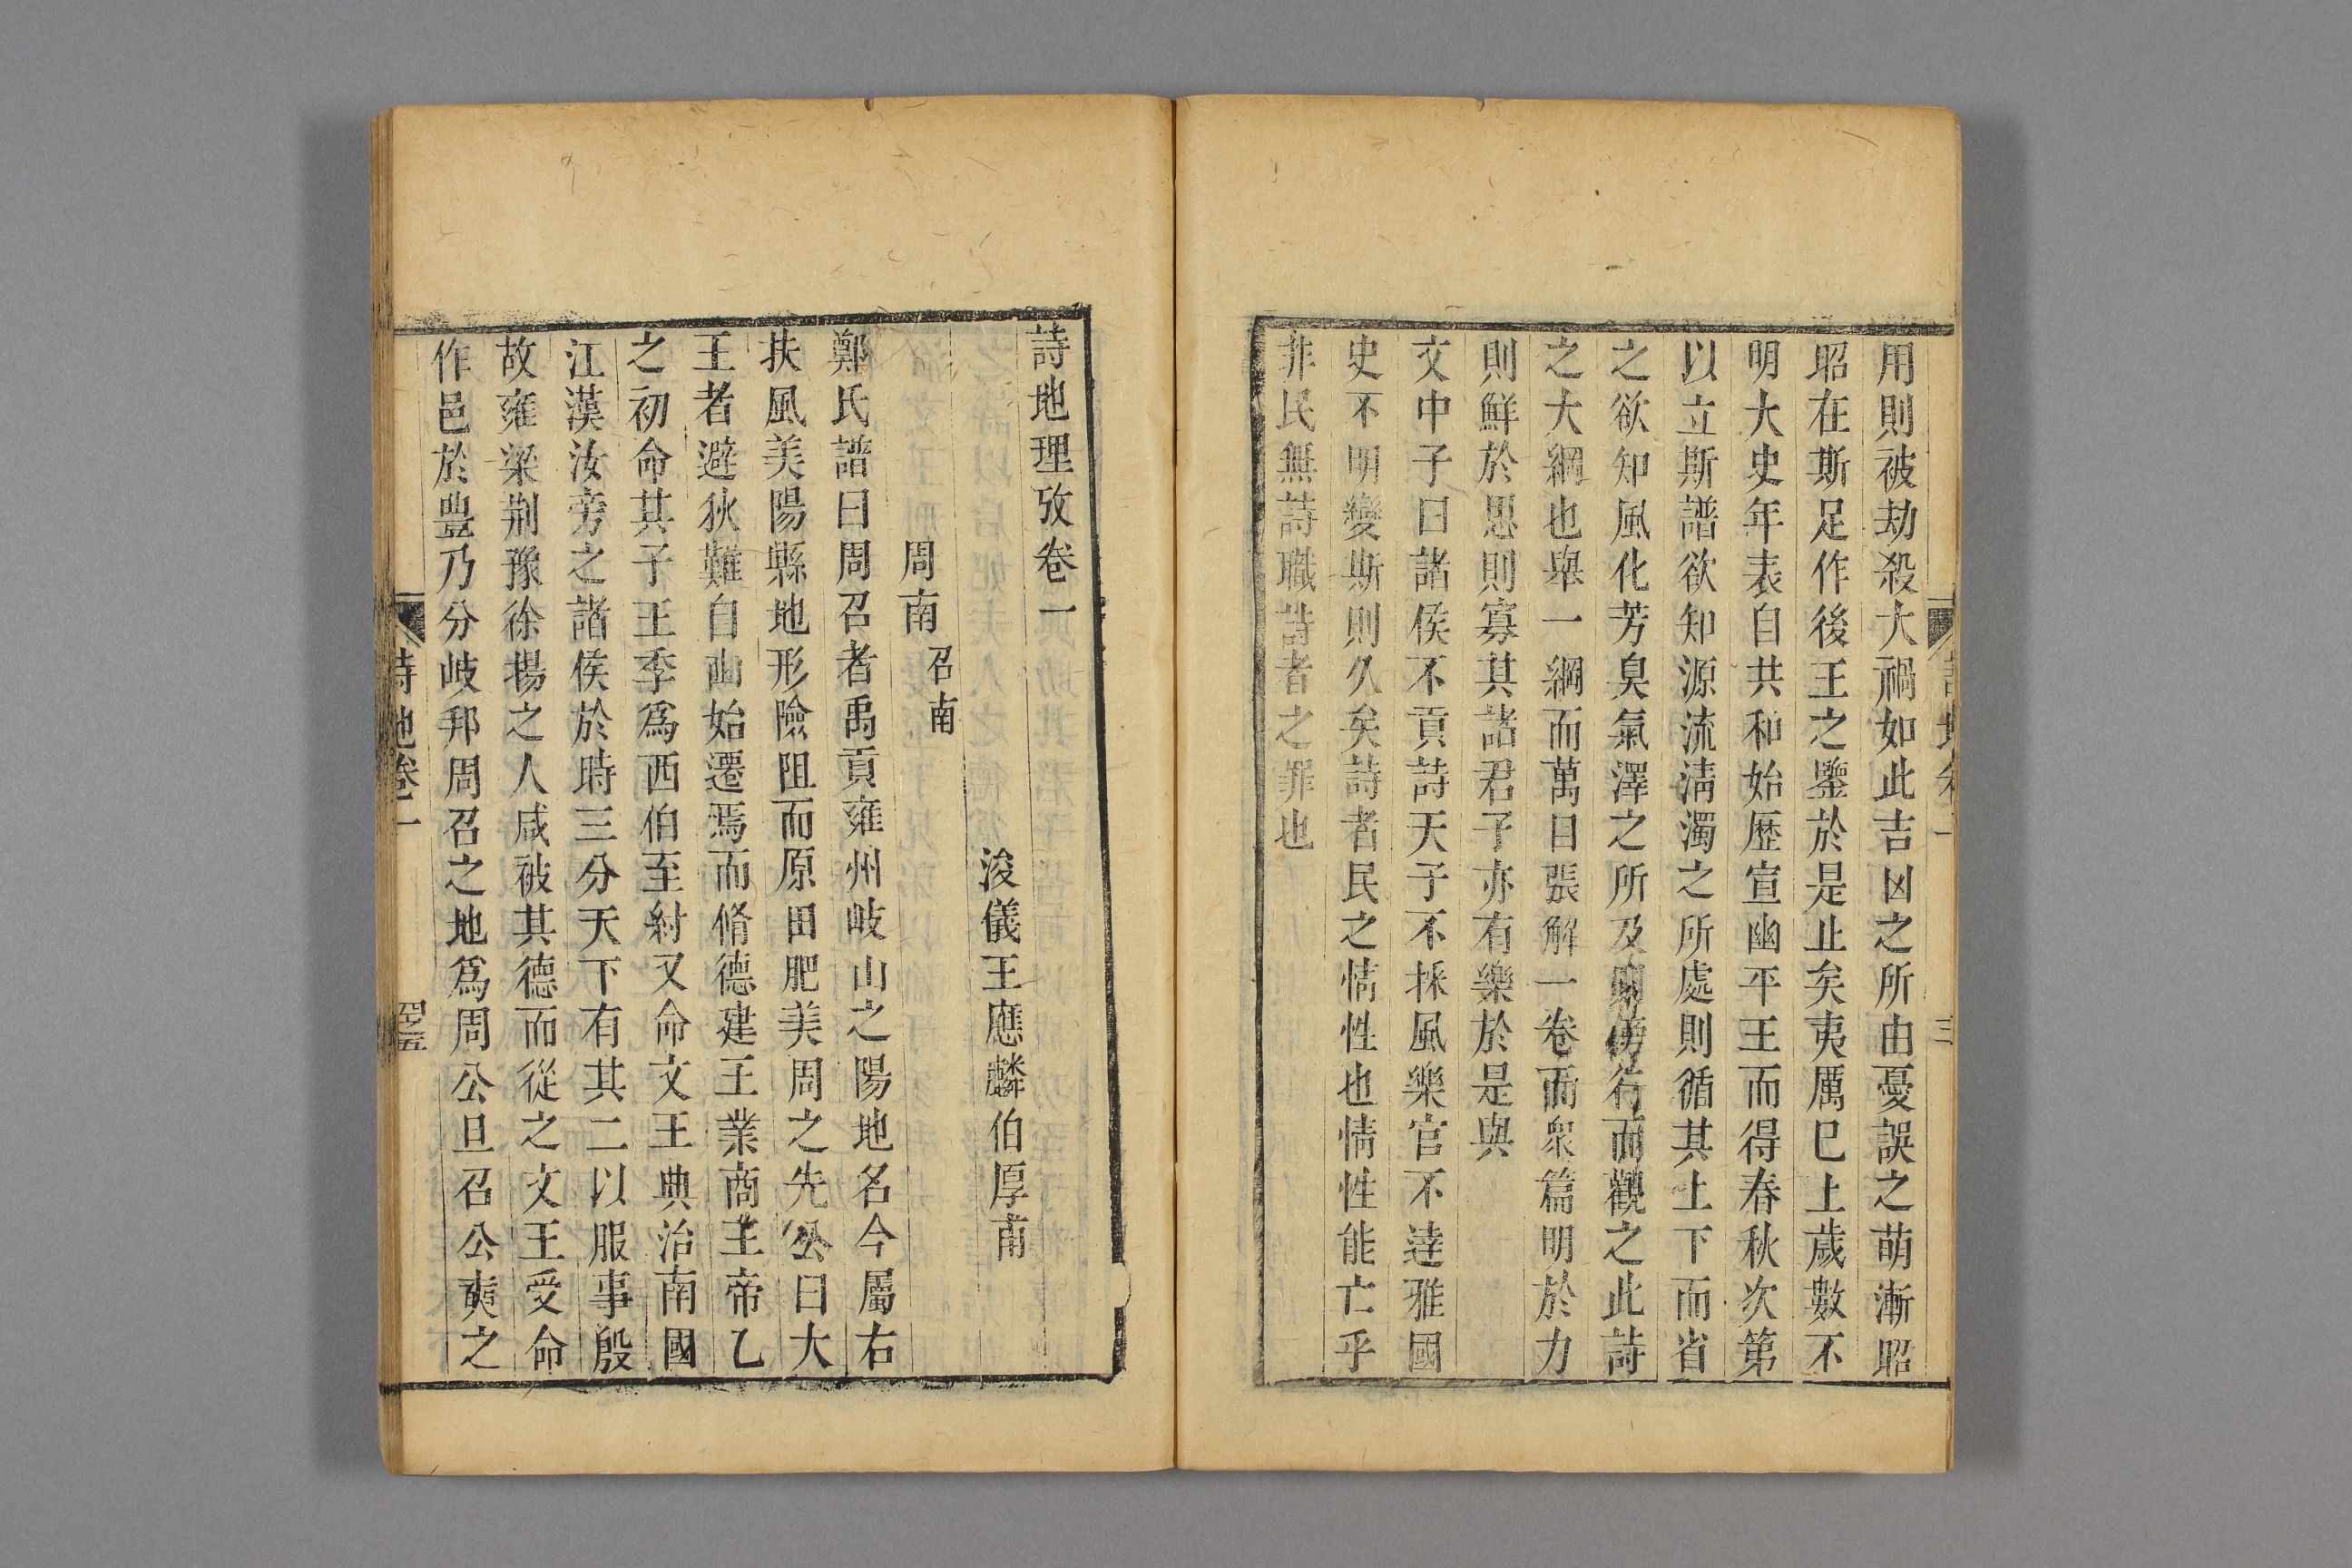 用則被劫殺大禍如此吉凶之所由憂誤之萌漸昭
昭在斯足作後王之鑒於是止矣夷厲巳上歲數不
明大史年表自共和始歴宣幽平王而得春秋次第
以立斯譜欲知源流淸濁之所處則循其上下而省
之欲知風化芳臭氣澤之所及則傍行而觀之此詩
之大綱也舉一綱而萬目張解一卷而衆篇明於力
則鮮於思則寡其諸君子亦有樂於是與
文中子曰諸侯不貢詩天子不採風樂官不達雅國
史不明變斯則久矣詩者民之情性也情性能亡乎
非民無詩職詩者之罪也
三
詩地理攷卷一
浚儀王應麟伯厚甫
周南
召南
鄭氏譜曰周召者禹貢雍州岐山之陽地名今屬右
扶風美陽縣地形險阻而原田肥美周之先公曰大
王者避狄難自豳始遷焉而脩德建王業商王帝乙
之初命其子王季爲西伯至紂又命文王典治南國
江漢汝旁之諸侯於時三分天下有其二以服事殷
故雍梁荆豫徐揚之人咸被其德而從之文王受命
作邑於豐乃分岐邦周召之地爲周公旦召公奭之
詩地卷一